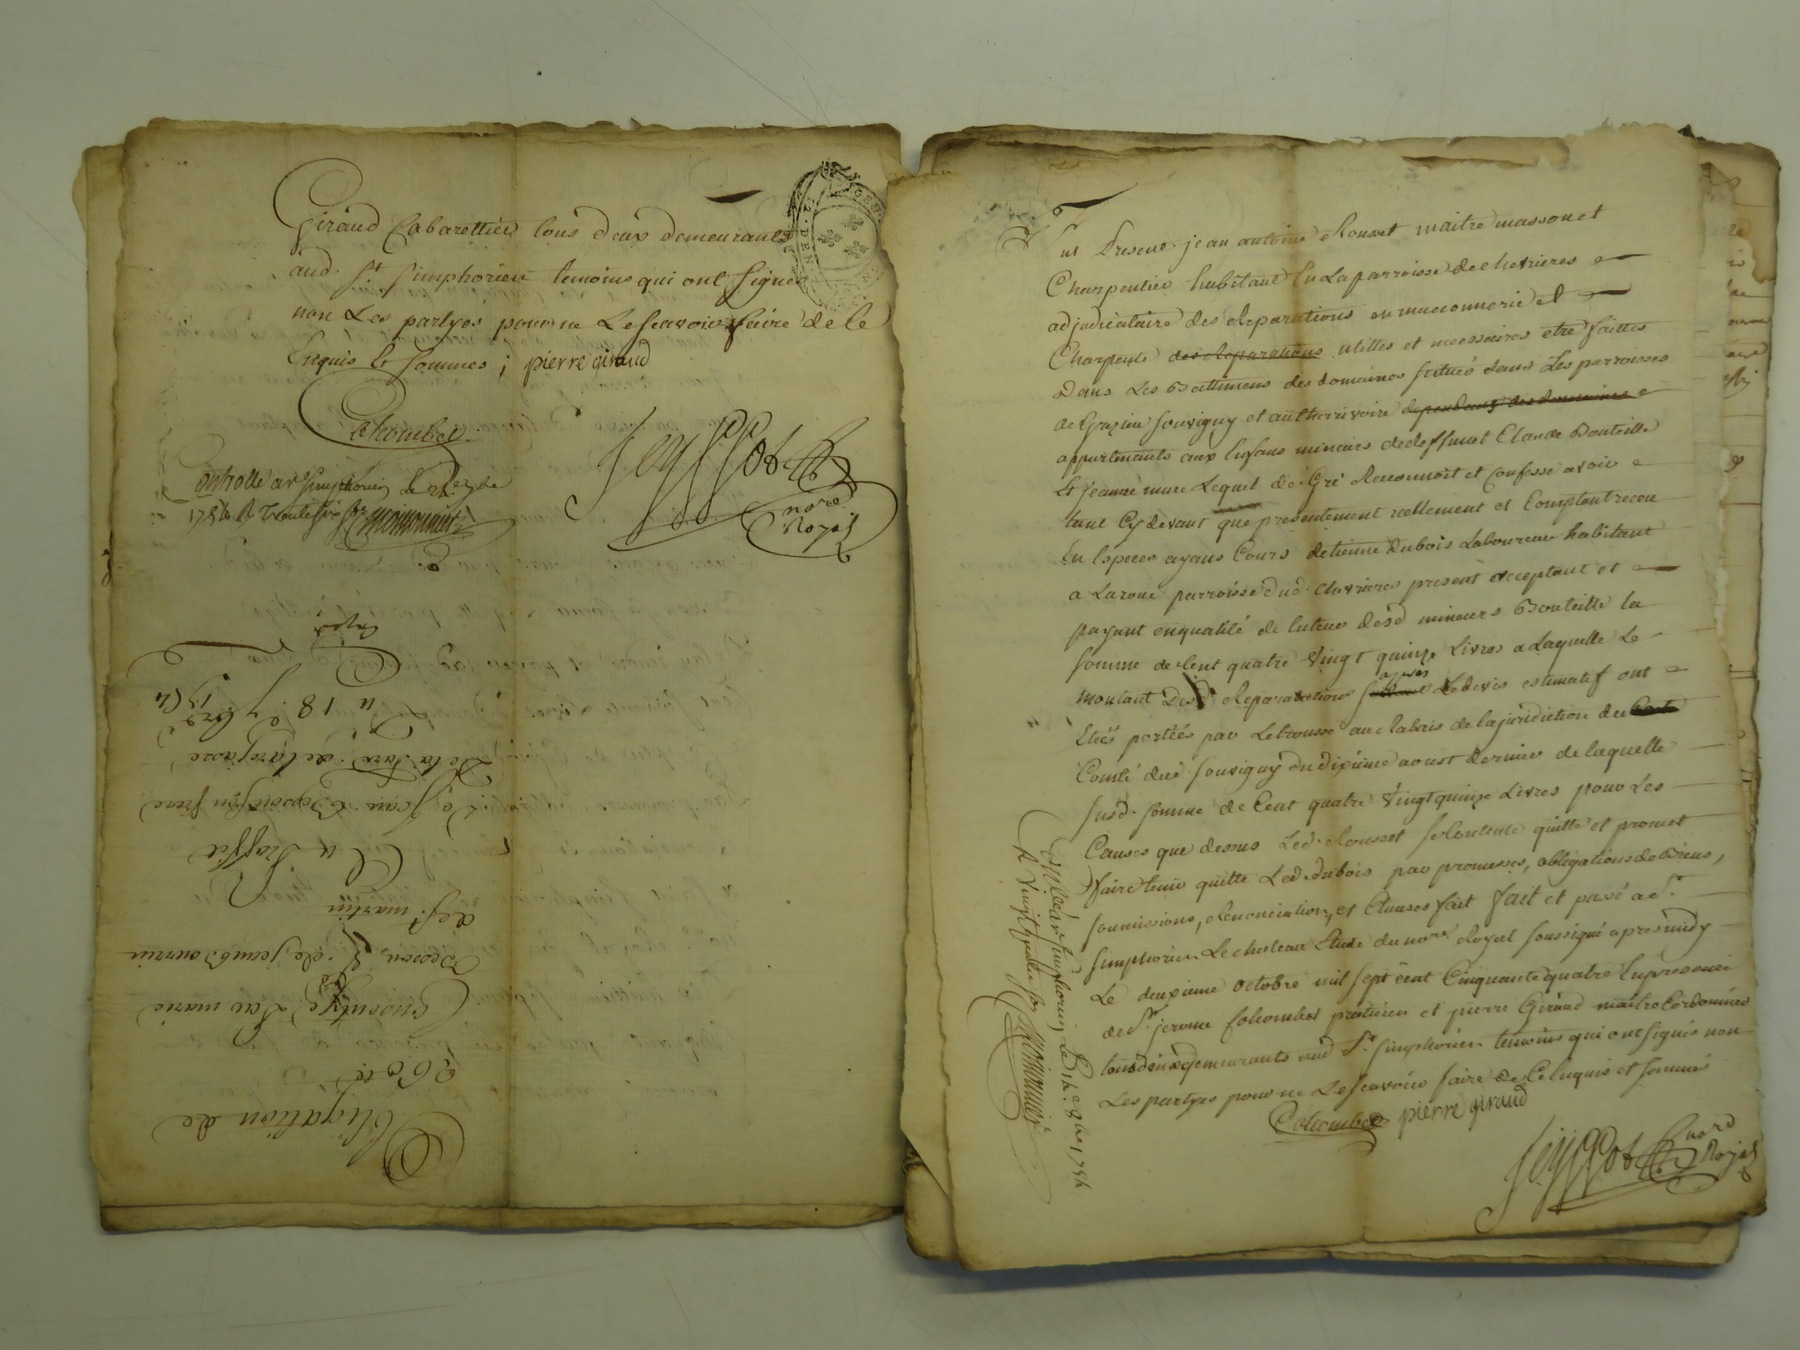 Giraud Cabarettier tous deux demeurants
aud. St. Simphorien temoins qui ont signé
non Les partyes pour ne Le scavoir faire de ce
Enquis et sommés ; pierre giraud
Colcombet
nore
Royal
Controllé a St Simphorien Le
1754 R trente
Obligation de
260 lt
Consentye par marie
Besson, Ve. de jean Bourrin
def. martin
Au proffit
De jean Besson son frere
De la parr. de Larajasse
Du 18 7bre
1754
Fut Present jean antoine Rousset maitre masson et
Charpentier habitant En La parroisse de chevrieres
adjudicataire des Reparations en massonnerie et
Charpente des Reparations utilles et necessaires etre faittes
Dans Les Battimens des domaines situés dans Les parroisses
de Grezieu Souvigny et autherivoire dependants des domaines
appartenants aux Enfans mineurs de deffunt Claude Bouteille
Et jeanne mure Lequel de Gré Reconnoit et Confesse avoir
tant Cy devant que presentement reellement et Comptant receu
En Especes ayans Cours detienne dubois Laboureur habitant
a Laroue parroisse dud. chevrieres present acceptant et
payant en qualité de tuteur desd mineurs Bouteille la
somme de Cent quatre Vingt quinze Livres a Laquelle Le
montant Desd Reparations apres Le devis estimatif ont
Etéés portéés par Letrousse au Rabais de la juridiction du
Comté dud Souvigny du dixième aoust dernier de laquelle
susd. somme de Cent quatre Vingt quinze Livres pour Les
Causes que dessus Led. Rousset se Contente quitte et promet
faire tenir quitte Led. dubois par promesses, obligations de Biens,
soumissions, Renonciations, et Clauses fait fait et passé a St.
Simphorien Le chateau Etude du nore Royal soussigné apres midy
Le deuxieme octobre mil sept cent Cinquante quatre En presence
de Sr. jerome Colcombet praticien et pierre Giraud maitre Cordonnier
tous deux demeurants aud St. Simphorien temoins qui ont signés non
Les partyes pour ne Le scavoir faire de Ce Enquis et sommés
Colcombet pierre giraud
nore
Royal
Controllé a St Simphorien Le 8bre 1754
R Vingt quatre sols